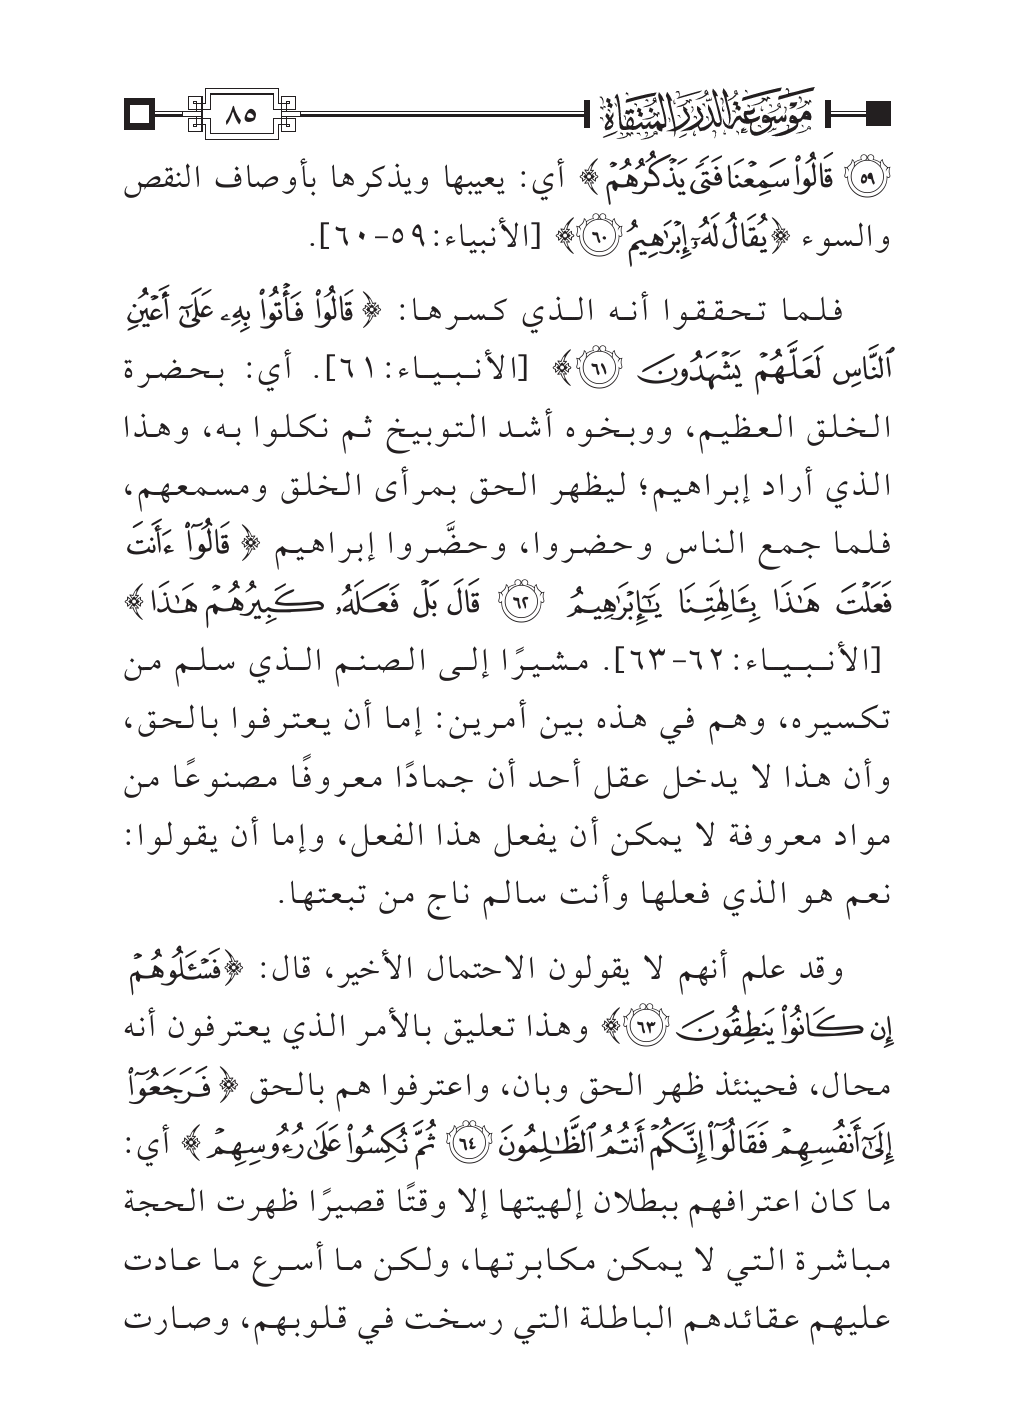 موسوعة الدرر المنتقاة ٨٥
٥٩ قَالُوا۟ سَمِعْنَا فَتًى يَذْكُرُهُمْ ﴾ أي: يعيبها ويذكرها بأوصاف النقص
والسوء ﴿يُقَالُ لَهُۥٓ إِبْرَٰهِيمُ ٦٠﴾ [الأنبياء:٥٩-٦٠].
فلما تحققوا أنه الذي كسرها: ﴿ قَالُوا۟ فَأْتُوا۟ بِهِۦ عَلَىٰٓ أَعْيُنِ
ٱلنَّاسِ لَعَلَّهُمْ يَشْهَدُونَ ٦١﴾ [الأنبياء:٦١]. أي: بحضرة
الخلق العظيم، ووبخوه أشد التوبيخ ثم نكلوا به، وهذا
الذي أراد إبراهيم؛ ليظهر الحق بمرأى الخلق ومسمعهم،
فلما جمع الناس وحضروا، وحضَّروا إبراهيم ﴿ قَالُوٓا۟ ءَأَنتَ
فَعَلْتَ هَـٰذَا بِـَٔالِهَتِنَا يَـٰٓإِبْرَٰهِيمُ ٦٢ قَالَ بَلْ فَعَلَهُۥ كَبِيرُهُمْ هَـٰذَا ﴾
[الأنبياء:٦٢-٦٣]. مشيرًا إلى الصنم الذي سلم من
تكسيره، وهم في هذه بين أمرين: إما أن يعترفوا بالحق،
وأن هذا لا يدخل عقل أحد أن جمادًا معروفًا مصنوعًا من
مواد معروفة لا يمكن أن يفعل هذا الفعل، وإما أن يقولوا:
نعم هو الذي فعلها وأنت سالم ناج من تبعتها.
وقد علم أنهم لا يقولون الاحتمال الأخير، قال: ﴿فَسْـَٔلُوهُمْ
إِن كَانُوا۟ يَنطِقُونَ ٦٣﴾ وهذا تعليق بالأمر الذي يعترفون أنه
محال، فحينئذ ظهر الحق وبان، واعترفوا هم بالحق ﴿ فَرَجَعُوٓا۟
إِلَىٰٓ أَنفُسِهِمْ فَقَالُوٓا۟ إِنَّكُمْ أَنتُمُ ٱلظَّـٰلِمُونَ ٦٤ ثُمَّ نُكِسُوا۟ عَلَىٰ رُءُوسِهِمْ ﴾ أي:
ما كان اعترافهم ببطلان إلهيتها إلا وقتًا قصيرًا ظهرت الحجة
مباشرة التي لا يمكن مكابرتها، ولكن ما أسرع ما عادت
عليهم عقائدهم الباطلة التي رسخت في قلوبهم، وصارت